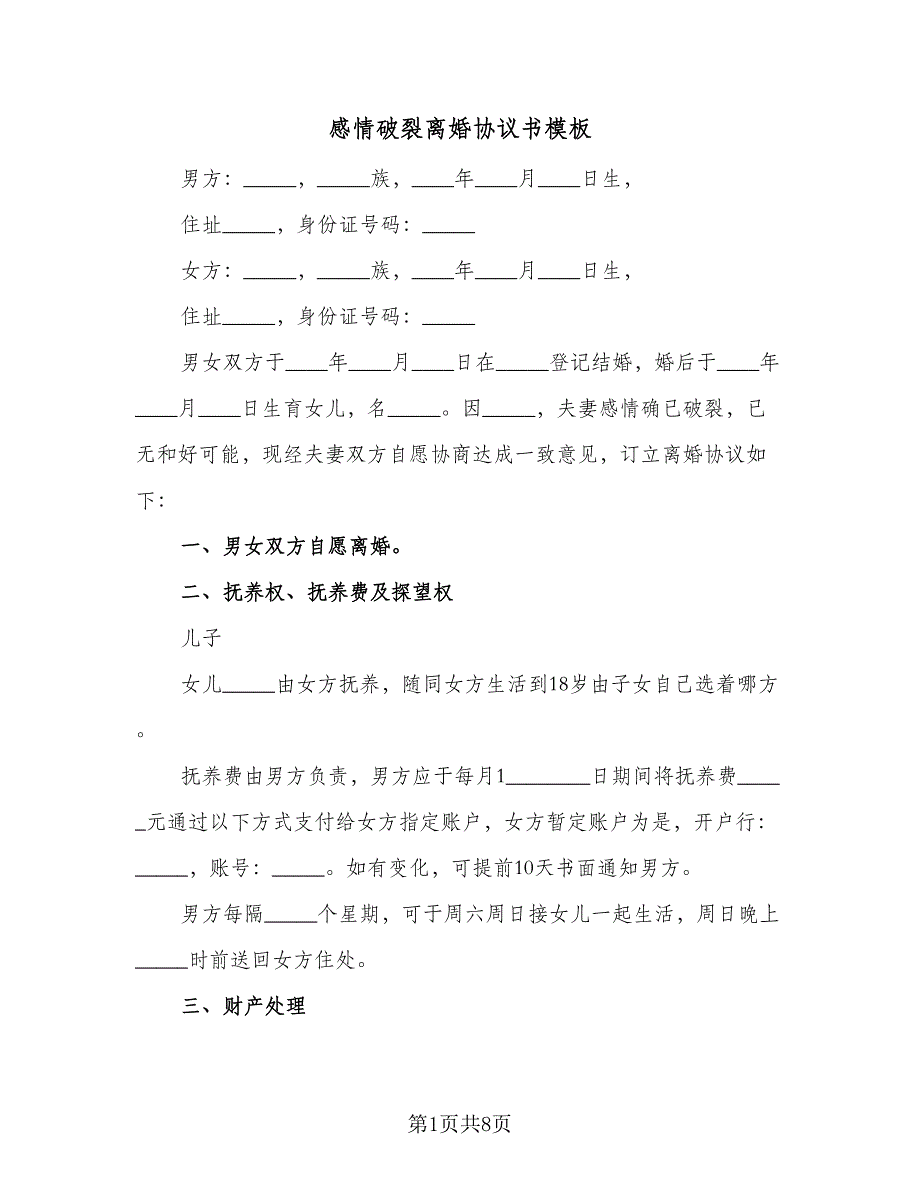 感情破裂离婚协议书模板
男方：_____，_____族，____年____月____日生，
住址_____，身份证号码：_____
女方：_____，_____族，____年____月____日生，
住址_____，身份证号码：_____
男女双方于____年____月____日在_____登记结婚，婚后于____年
____月____日生育女儿，名_____。因_____，夫妻感情确已破裂，已
无和好可能，现经夫妻双方自愿协商达成一致意见，订立离婚协议如
下：
一、男女双方自愿离婚。
二、抚养权、抚养费及探望权
儿子
女儿_____由女方抚养，随同女方生活到18岁由子女自己选着哪方
。
抚养费由男方负责，男方应于每月1________日期间将抚养费____
_元通过以下方式支付给女方指定账户，女方暂定账户为是，开户行：
_____，账号：_____。如有变化，可提前10天书面通知男方。
男方每隔_____个星期，可于周六周日接女儿一起生活，周日晚上
_____时前送回女方住处。
三、财产处理
第1页共8页